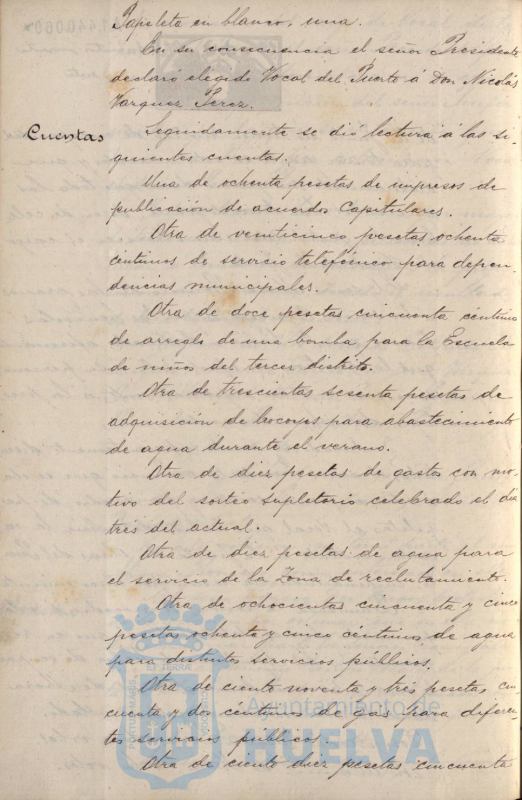 Papeleta en blanco, una.
En su consecuencia el señor Presidente
declaro elejido Vocal del Puerto á Don Nicolás
Vazquez Perez.
Cuentas
Seguidamente se dió lectura á las si-
guientes cuentas.
Una de ochenta pesetas de impresos de
publicación de acuerdos Capitulares.
Otra de veinticinco pesetas ochenta
centimos de servicio telefónico para depen-
dencias municipales.
Otra de doce pesetas cincuenta centimos
de arreglo de una bomba para la Escuela
de niños del tercer distrito.
Otra de trescientas sesenta pesetas de
adquisición de bocoyes para abastecimiento
de agua durante el verano.
Otra de diez pesetas de gastos con mo-
tivo del sorteo supletorio celebrado el dia
tres del actual.
Otra de diez pesetas de agua para
el servicio de la Zona de reclutamiento.
Otra de ochocientas cincuenta y cinco
pesetas ochenta y cinco céntimos de agua
para distintos servicios públicos.
Otra de ciento noventa y tres pesetas cin-
cuenta y dos centimos de gas para diferen-
tes servicios públicos.
Otra de ciento diez pesetas cincuenta
Ayuntamiento de
HUELVA